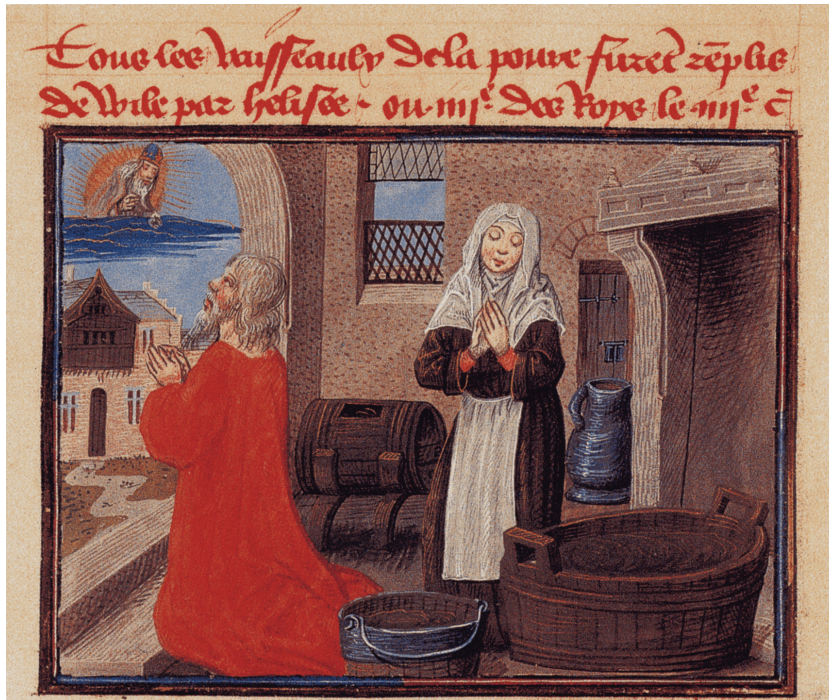 Tous les vaisseaulx de la povre furēt rēplis
de wile par helisee · ou iiijᵉ des Roys le iiijᵉ c̄